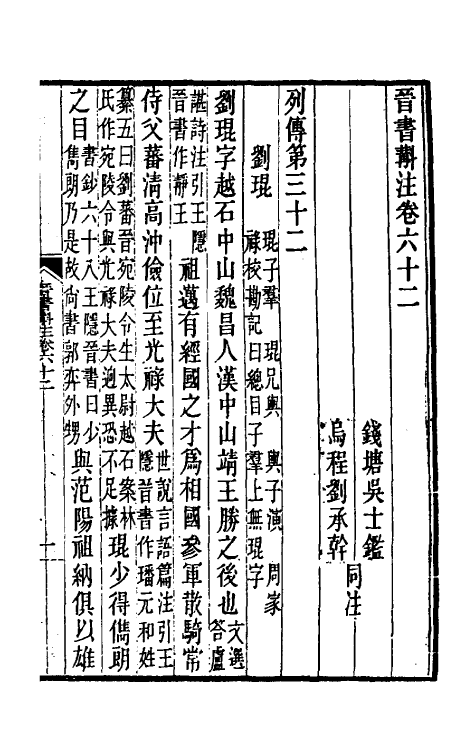 晉書斠注卷六十二
錢塘吳士鑑
烏程劉承幹
同注
列傳第三十二
劉琨
琨子羣 琨兄輿 輿子演 周家
祿校勘記曰總目子羣上無琨字
劉琨字越石中山魏昌人漢中山靖王勝之後也
文選
答盧
諶詩注引王隱
晉書作靜王
祖邁有經國之才爲相國參軍散騎常
侍父蕃清高沖儉位至光祿大夫
世說言語篇注引王
隱晉書作璠元和姓
纂五曰劉蕃晉宛陵令生太尉越石案林
氏作宛陵令與光祿大夫迥異恐不足據
琨少得儁朗
之目
書鈔六十八王隱晉書曰少
儁朗乃是故尚書郭弈外甥
與范陽祖納俱以雄
晉書斠注卷六十二
一